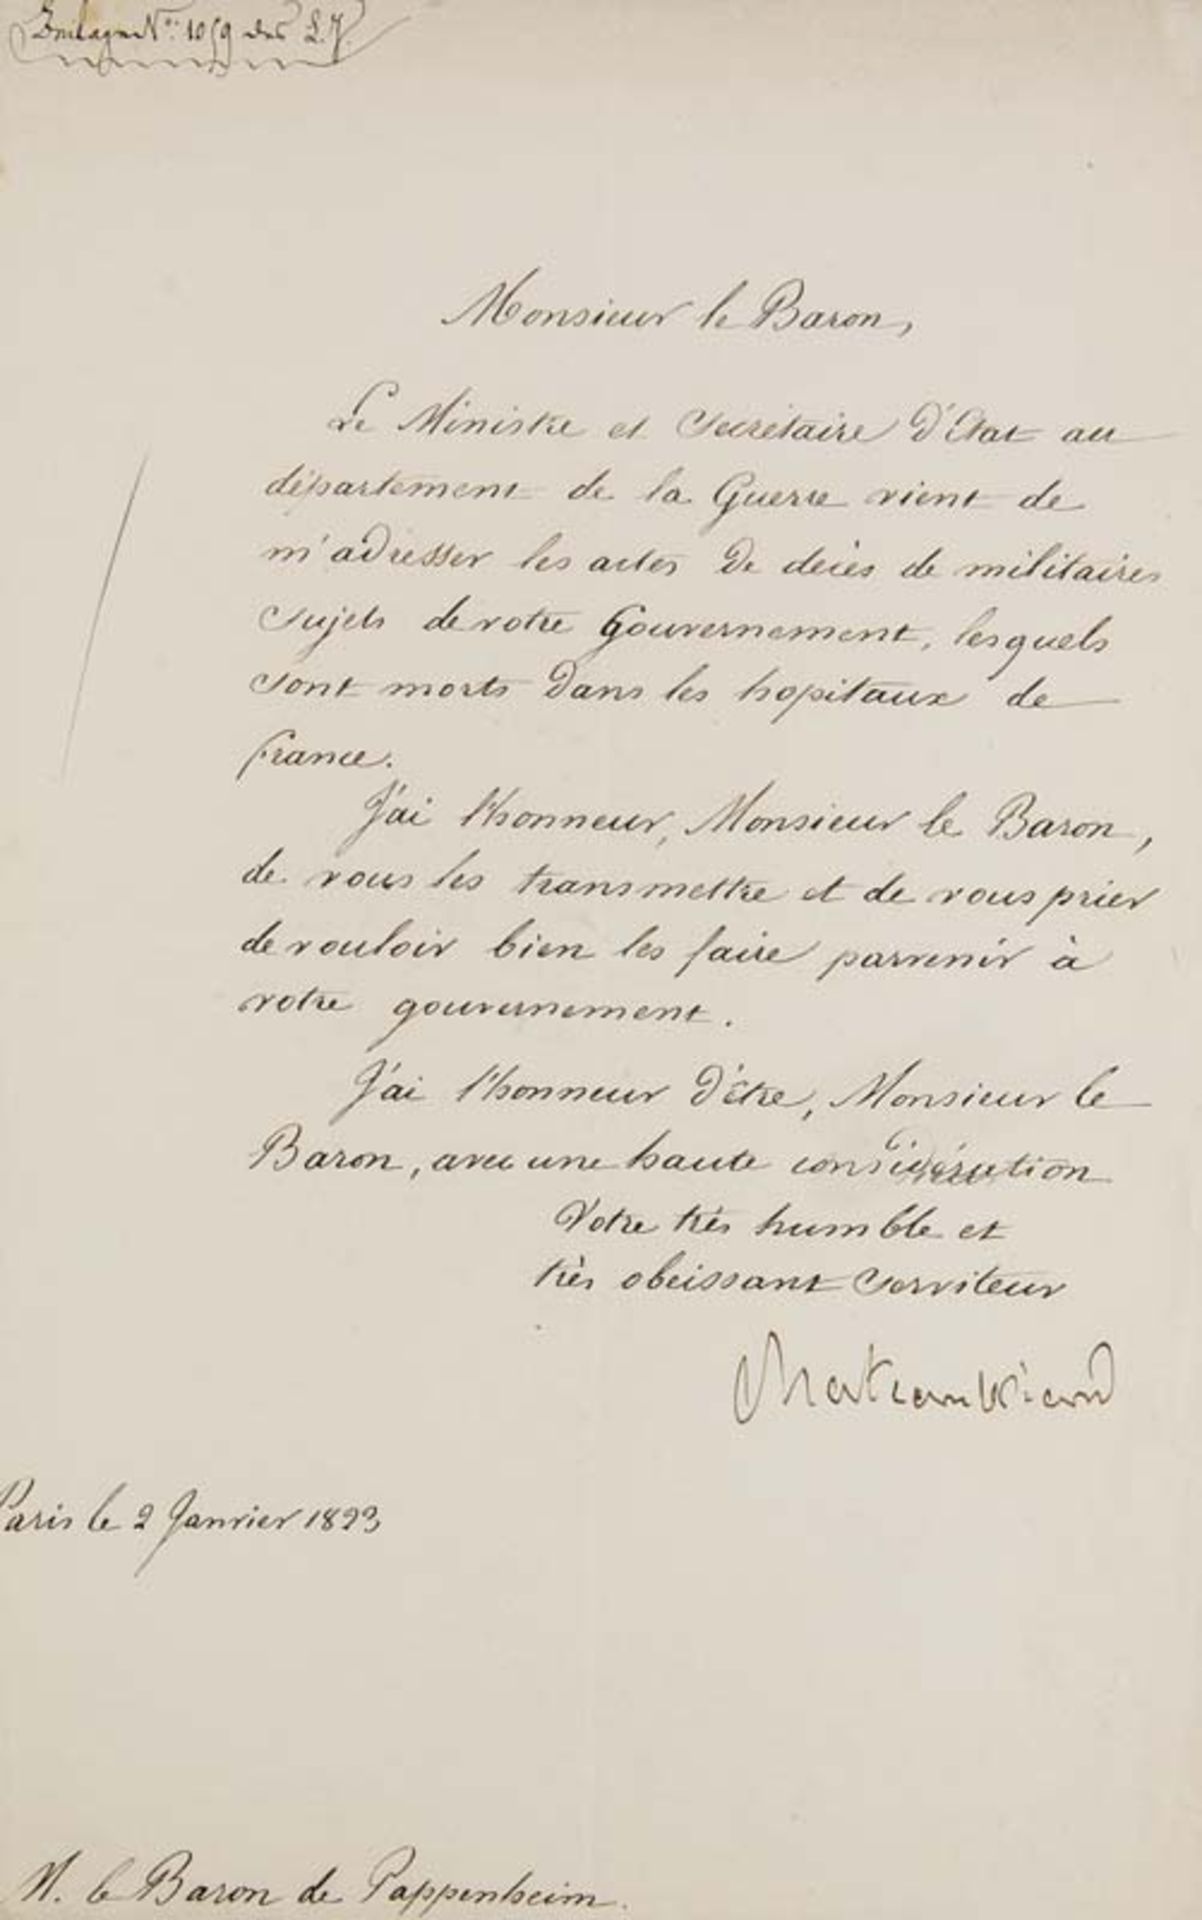 Monsieur le Baron,
Le Ministre et Secrétaire d'Etat au
département de la Guerre vient de
m'adresser les actes de décès de militaires
sujets de votre Gouvernement, lesquels
sont morts dans les hopitaux de
france.
J'ai l'honneur, Monsieur le Baron,
de vous les transmettre et de vous prier
de vouloir bien les faire parvenir à
votre gouvernement.
J'ai l'honneur d'être, Monsieur le
Baron, avec une haute considération
Votre très humble et
très obeissant serviteur
Chateaubriand
Paris le 2 Janvier 1823
M. le Baron de Pappenheim.